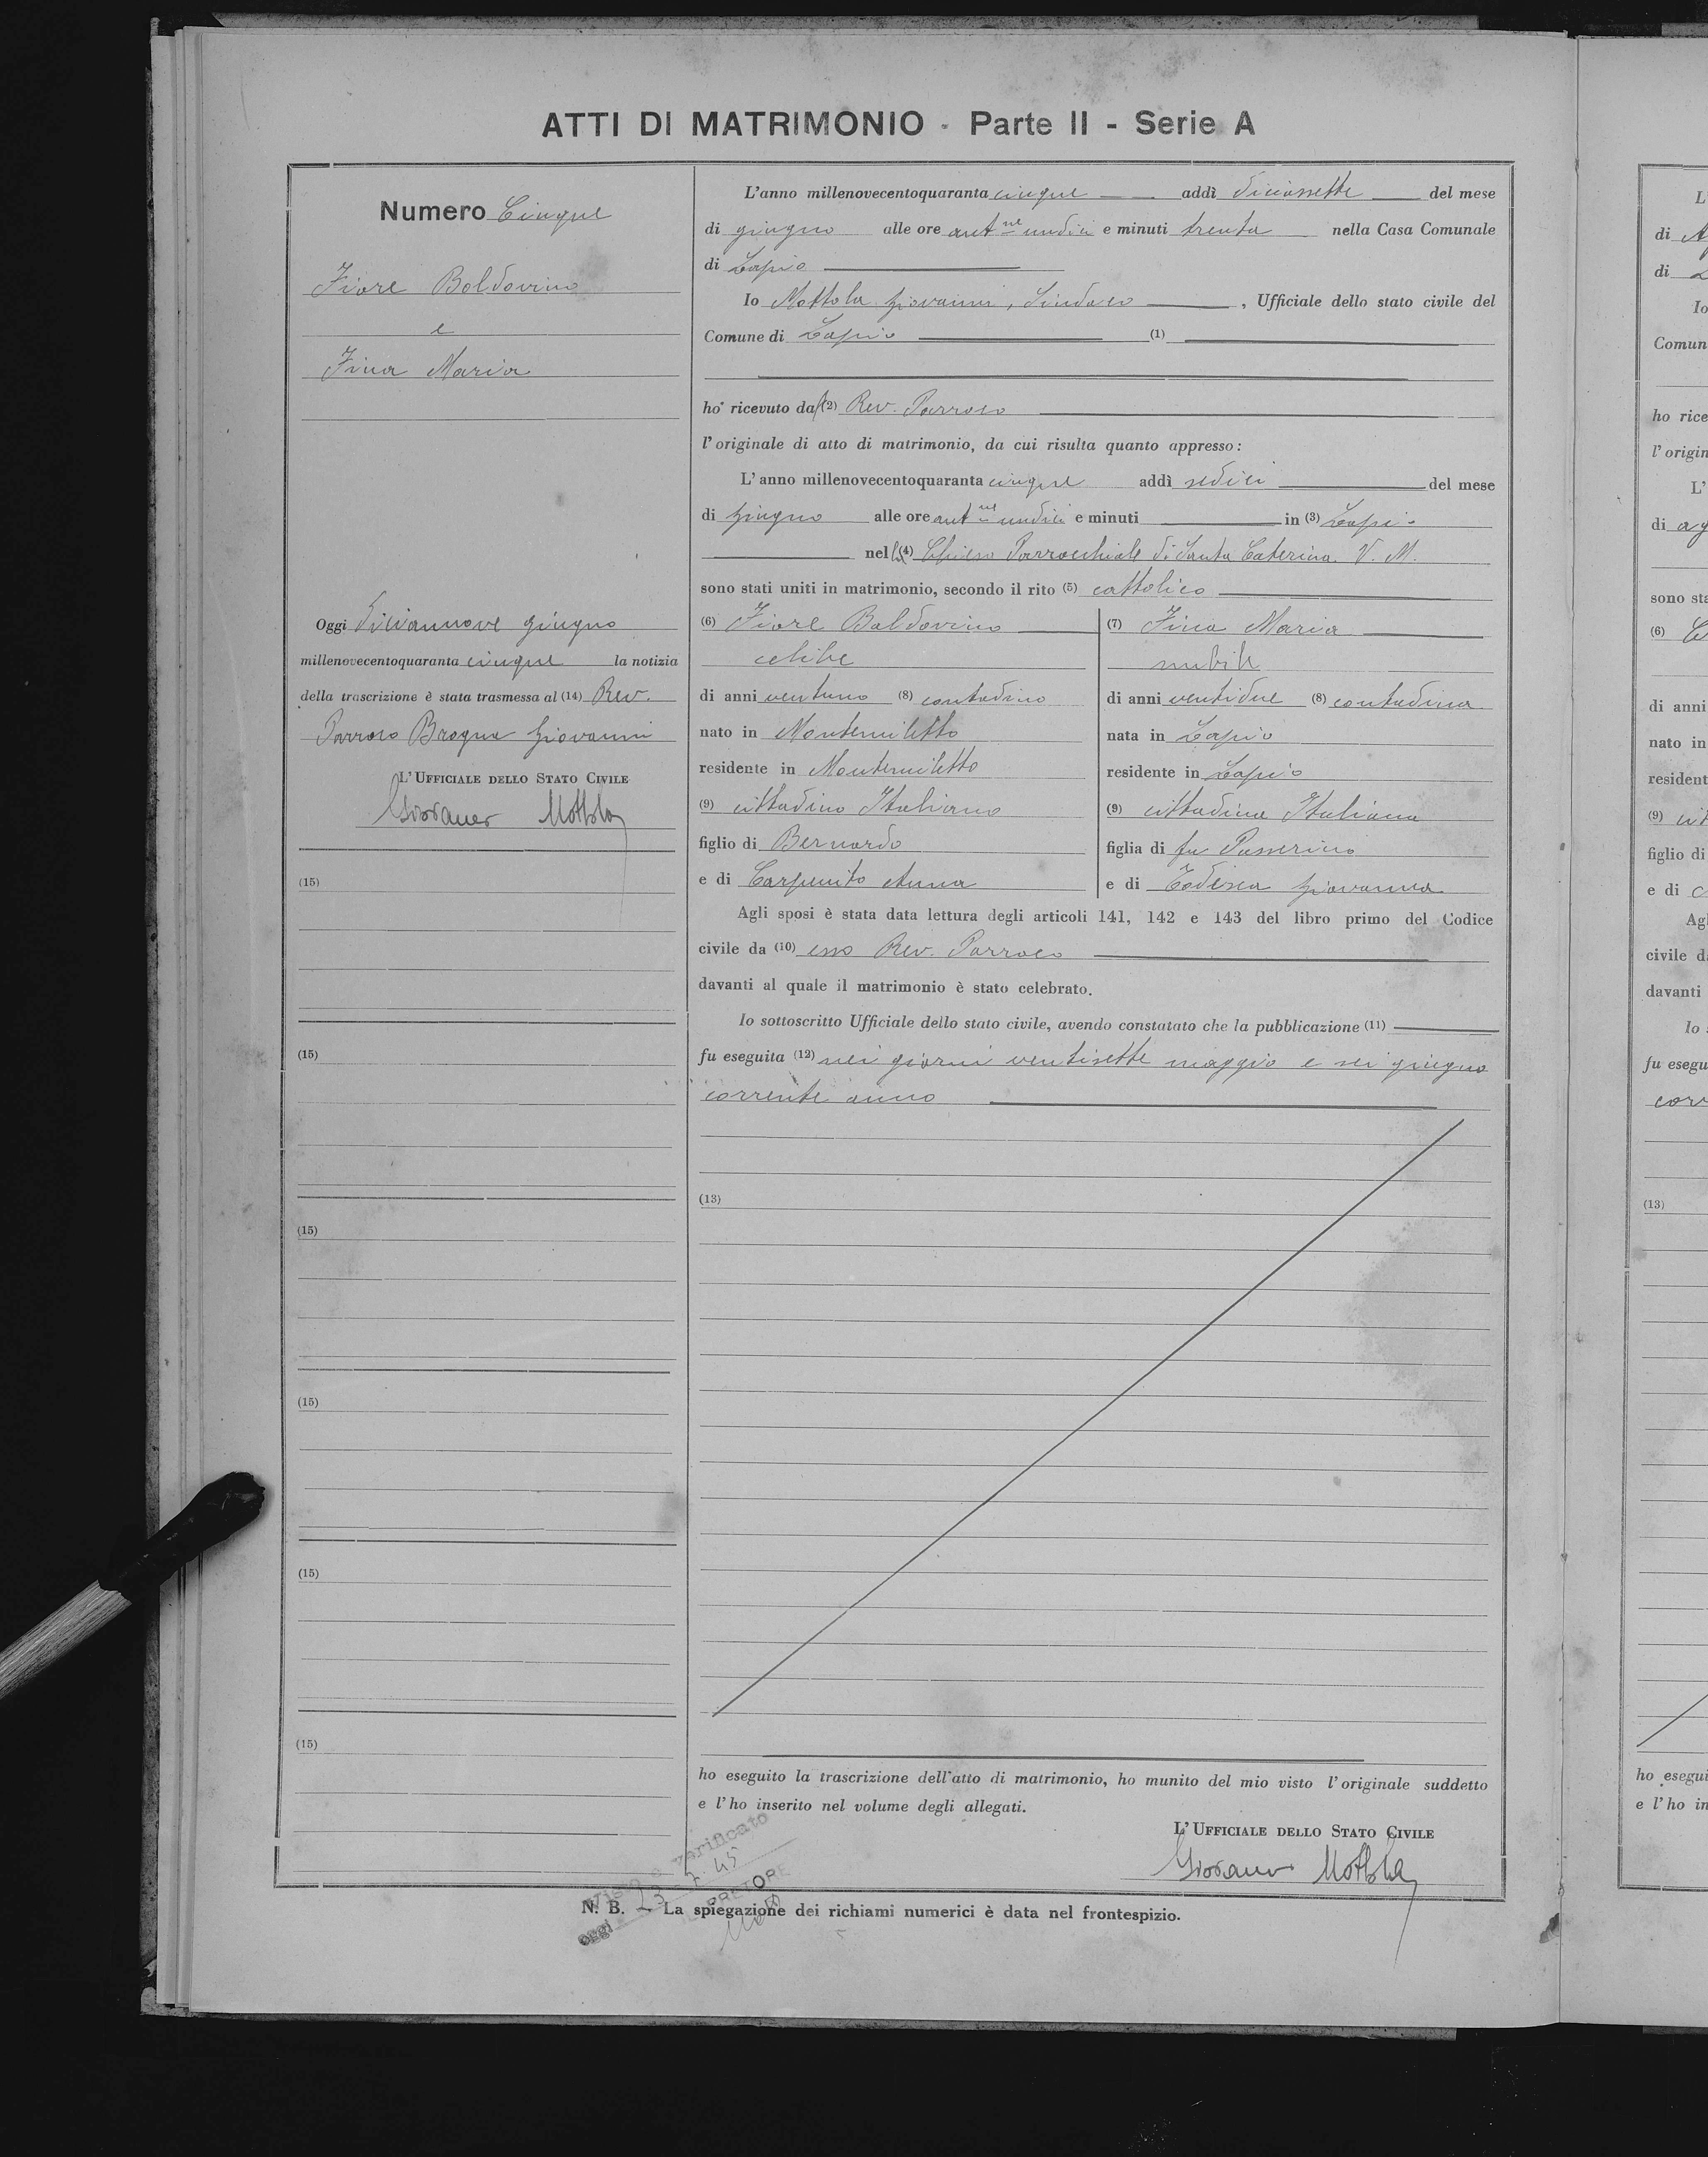 ATTI DI MATRIMONIO - Parte II - Serie A
Numero Cinque
Fiore Baldovino
e
Fina Maria
Oggi diciannove giugno
millenovecentoquaranta cinque la notizia
della trascrizione è stata trasmessa al (14) Rev.
Parroco Brogna Giovanni
L'UFFICIALE DELLO STATO CIVILE
Giovanni Mottola
(15)
(15)
(15)
(15)
(15)
(15)
L'anno millenovecentoquaranta cinque addì diciassette del mese
di giugno alle ore ant.ne undici e minuti trenta nella Casa Comunale
di Lapio
Io Mottola Giovanni, Sindaco, Ufficiale dello stato civile del
Comune di Lapio (1)
ho ricevuto dal (2) Rev. Parroco
l'originale di atto di matrimonio, da cui risulta quanto appresso:
L'anno millenovecentoquaranta cinque addì sedici del mese
di giugno alle ore ant.ne undici e minuti in (3) Lapio
nella (4) Chiesa Parrocchiale di Santa Caterina V. M.
sono stati uniti in matrimonio, secondo il rito (5) cattolico
(6) Fiore Baldovino
celibe
di anni ventuno (8) contadino
nato in Montemiletto
residente in Montemiletto
(9) cittadino Italiano
figlio di Bernardo
e di Carpenito Anna
(7) Fina Maria
nubile
di anni ventidue (8) contadina
nata in Lapio
residente in Lapio
(9) cittadina Italiana
figlia di fu Passerino
e di Todesca Giovanna
Agli sposi è stata data lettura degli articoli 141, 142 e 143 del libro primo del Codice
civile da (10) esso Rev. Parroco
davanti al quale il matrimonio è stato celebrato.
Io sottoscritto Ufficiale dello stato civile, avendo constatato che la pubblicazione (11)
fu eseguita (12) nei giorni ventisette maggio e sei giugno
corrente anno
(13)
ho eseguito la trascrizione dell'atto di matrimonio, ho munito del mio visto l'originale suddetto
e l'ho inserito nel volume degli allegati.
L'UFFICIALE DELLO STATO CIVILE
Giovanni Mottola
Visto e verificato
oggi
PRETORE
N. B. - La spiegazione dei richiami numerici è data nel frontespizio.
L'
di
di
Io
Comun
ho rice
l'origin
L'
di ag
sono sta
(6)
di anni
nato in
resident
(9) cit
figlio di
e di
Agl
civile d
davanti
Io
fu esegu
corr
(13)
ho esegui
e l'ho in